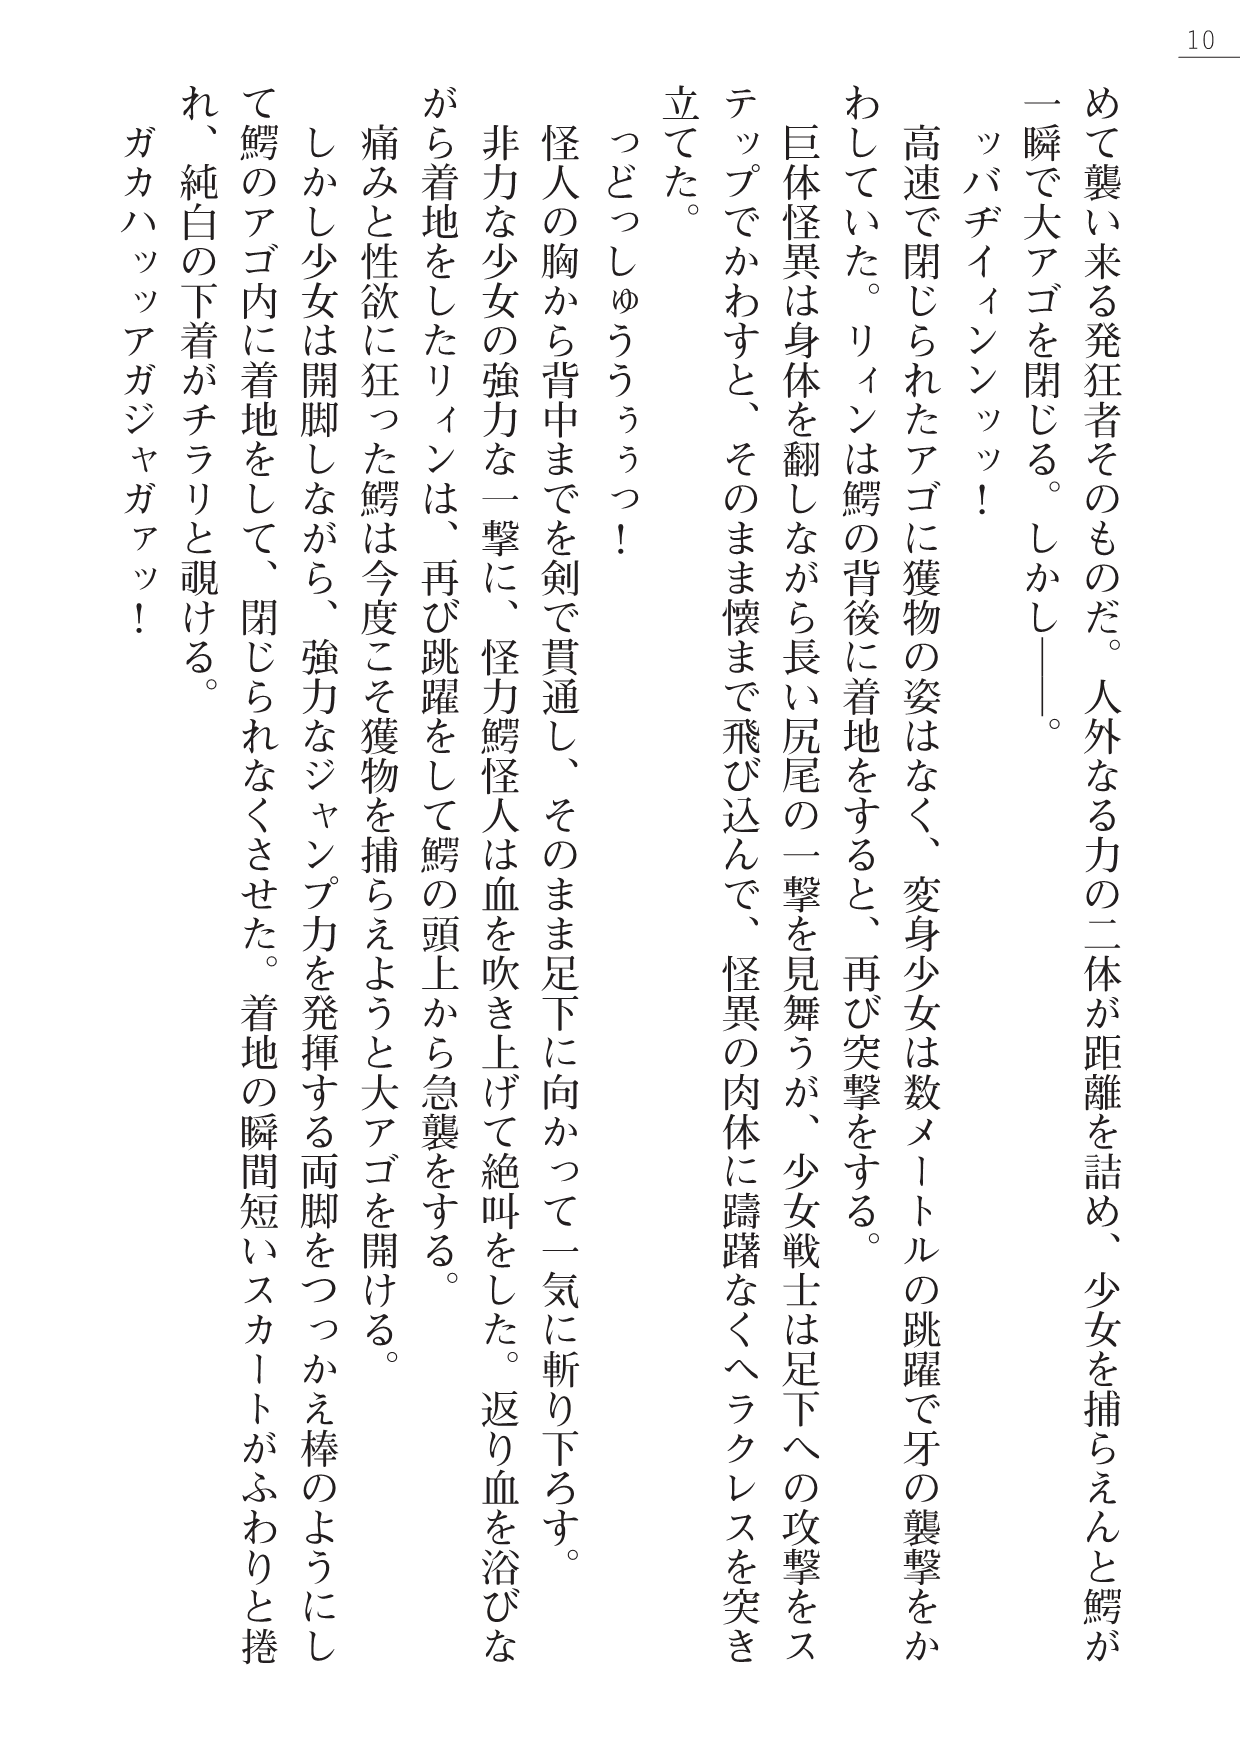 10
めて襲い来る発狂者そのものだ。人外なる力の二体が距離を詰め、少女を捕らえんと鰐が
一瞬で大アゴを閉じる。しかし――。
ッバヂイィンンッッ！
高速で閉じられたアゴに獲物の姿はなく、変身少女は数メートルの跳躍で牙の襲撃をか
わしていた。リィンは鰐の背後に着地をすると、再び突撃をする。
巨体怪異は身体を翻しながら長い尻尾の一撃を見舞うが、少女戦士は足下への攻撃をス
テップでかわすと、そのまま懐まで飛び込んで、怪異の肉体に躊躇なくヘラクレスを突き
立てた。
っどっしゅうううぅぅっ！
怪人の胸から背中までを剣で貫通し、そのまま足下に向かって一気に斬り下ろす。
非力な少女の強力な一撃に、怪力鰐怪人は血を吹き上げて絶叫をした。返り血を浴びな
がら着地をしたリィンは、再び跳躍をして鰐の頭上から急襲をする。
痛みと性欲に狂った鰐は今度こそ獲物を捕らえようと大アゴを開ける。
しかし少女は開脚しながら、強力なジャンプ力を発揮する両脚をつっかえ棒のようにし
て鰐のアゴ内に着地をして、閉じられなくさせた。着地の瞬間短いスカートがふわりと捲
れ、純白の下着がチラリと覗ける。
ガカハッッアガジャガァッ！